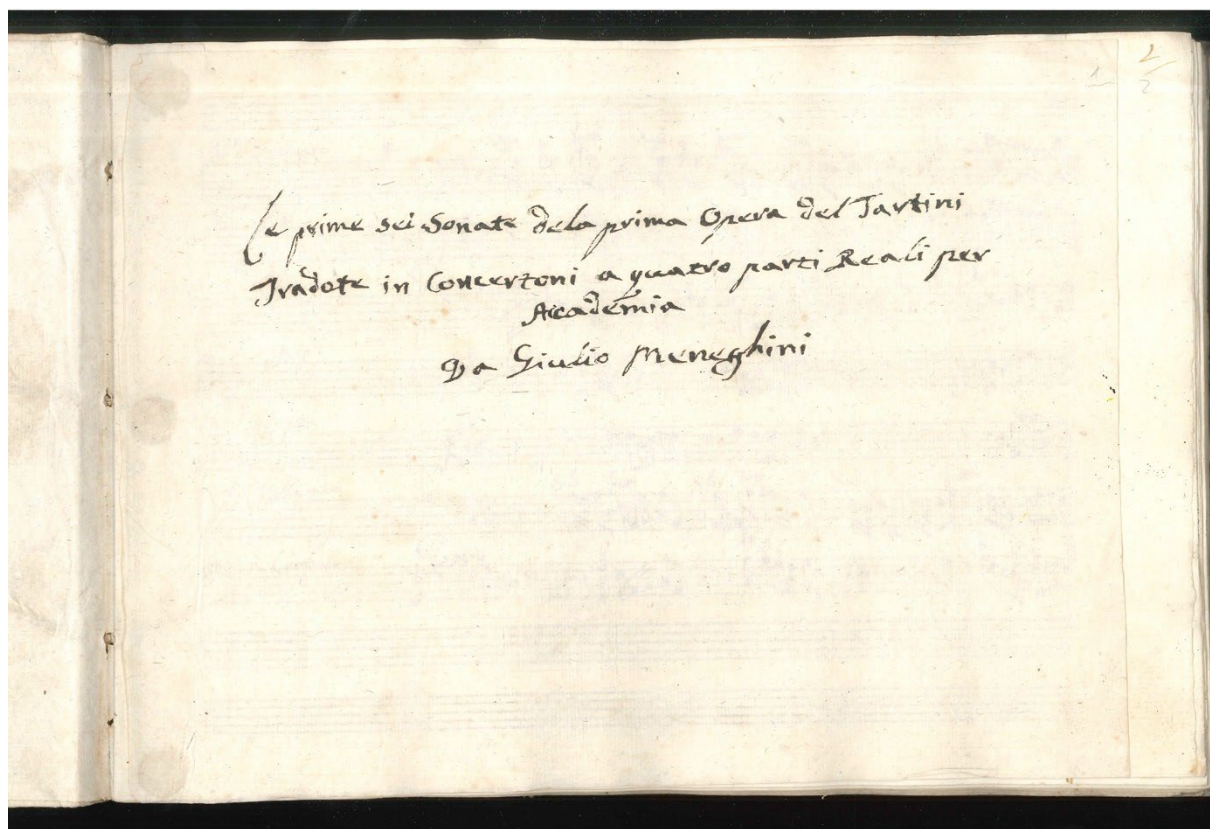 Le prime sei Sonate dela prima Opera del Tartini
Tradote in Concertoni a quatro parti Reali per
Accademia
Da Giulio Meneghini